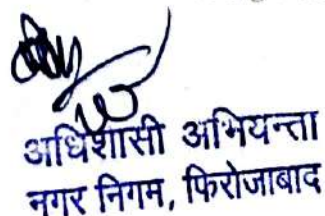 अधिशासी अभियन्ता
नगर निगम, फिरोजाबाद